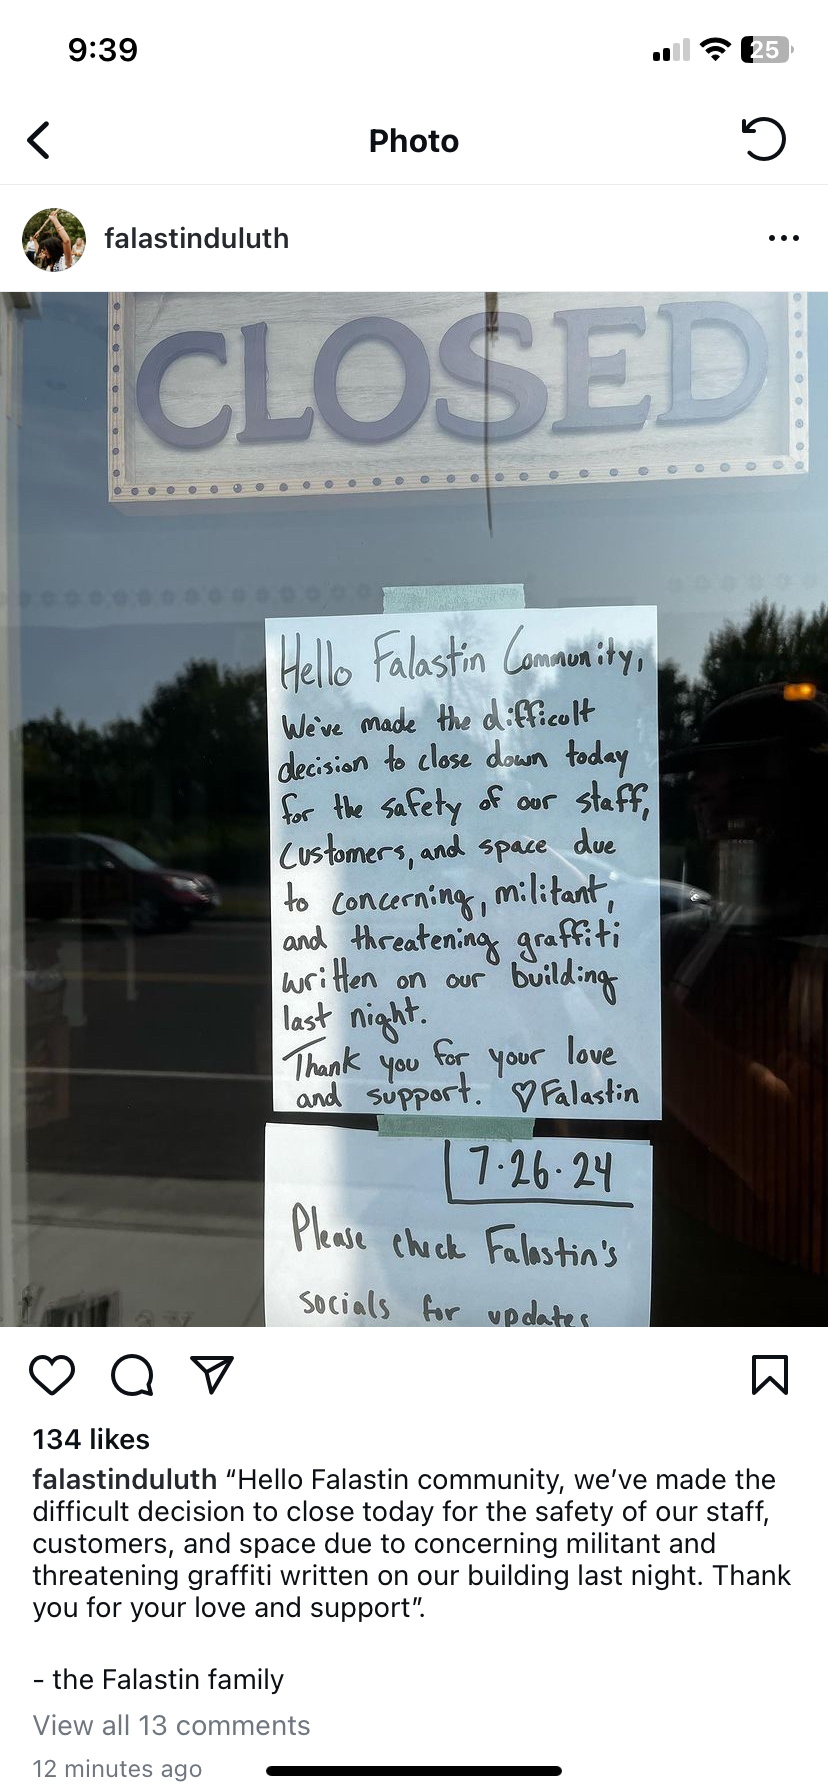 9:39
25
Photo
falastinduluth
CLOSED
Hello Falastin Community,
We've made the difficult
decision to close down today
for the safety of our staff,
customers, and space due
to concerning, militant,
and threatening graffiti
written on our building
last night.
Thank you for your love
and support. ♡Falastin
7·26·24
Please check Falastin's
socials for updates
134 likes
falastinduluth “Hello Falastin community, we’ve made the
difficult decision to close today for the safety of our staff,
customers, and space due to concerning militant and
threatening graffiti written on our building last night. Thank
you for your love and support”.
- the Falastin family
View all 13 comments
12 minutes ago